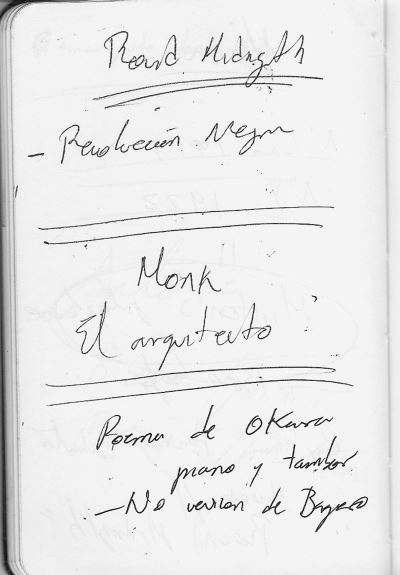 Round Midnigth
- Revolución Negra
Monk
El arquitecto
Poema de OKara
piano y tambor
- No version de